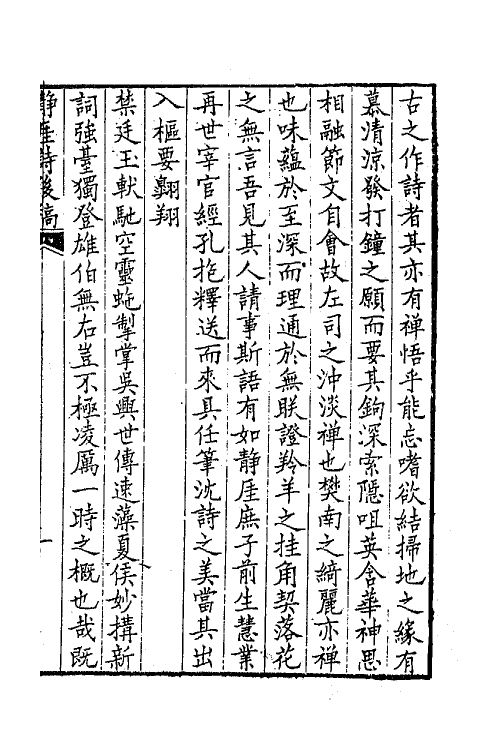 古之作詩者其亦有禅悟乎能忘嗜欲結掃地之緣有
慕清涼發打鐘之願而要其鉤深索隱咀英含華神思
相融節文自會故左司之沖淡禅也樊南之綺麗亦禅
也味蘊於至深而理通於無朕證羚羊之挂角契落花
之無言吾見其人請事斯語有如静厓庶子前生慧業
再世宰官經孔抱釋送而來具任筆沈詩之美當其出
入樞要翺翔
禁廷玉軑馳空靈虵掣掌吳興世傳速藻夏侯妙搆新
詞強臺獨登雄伯無右豈不極凌厲一時之概也哉既
静厓詩後稿
一